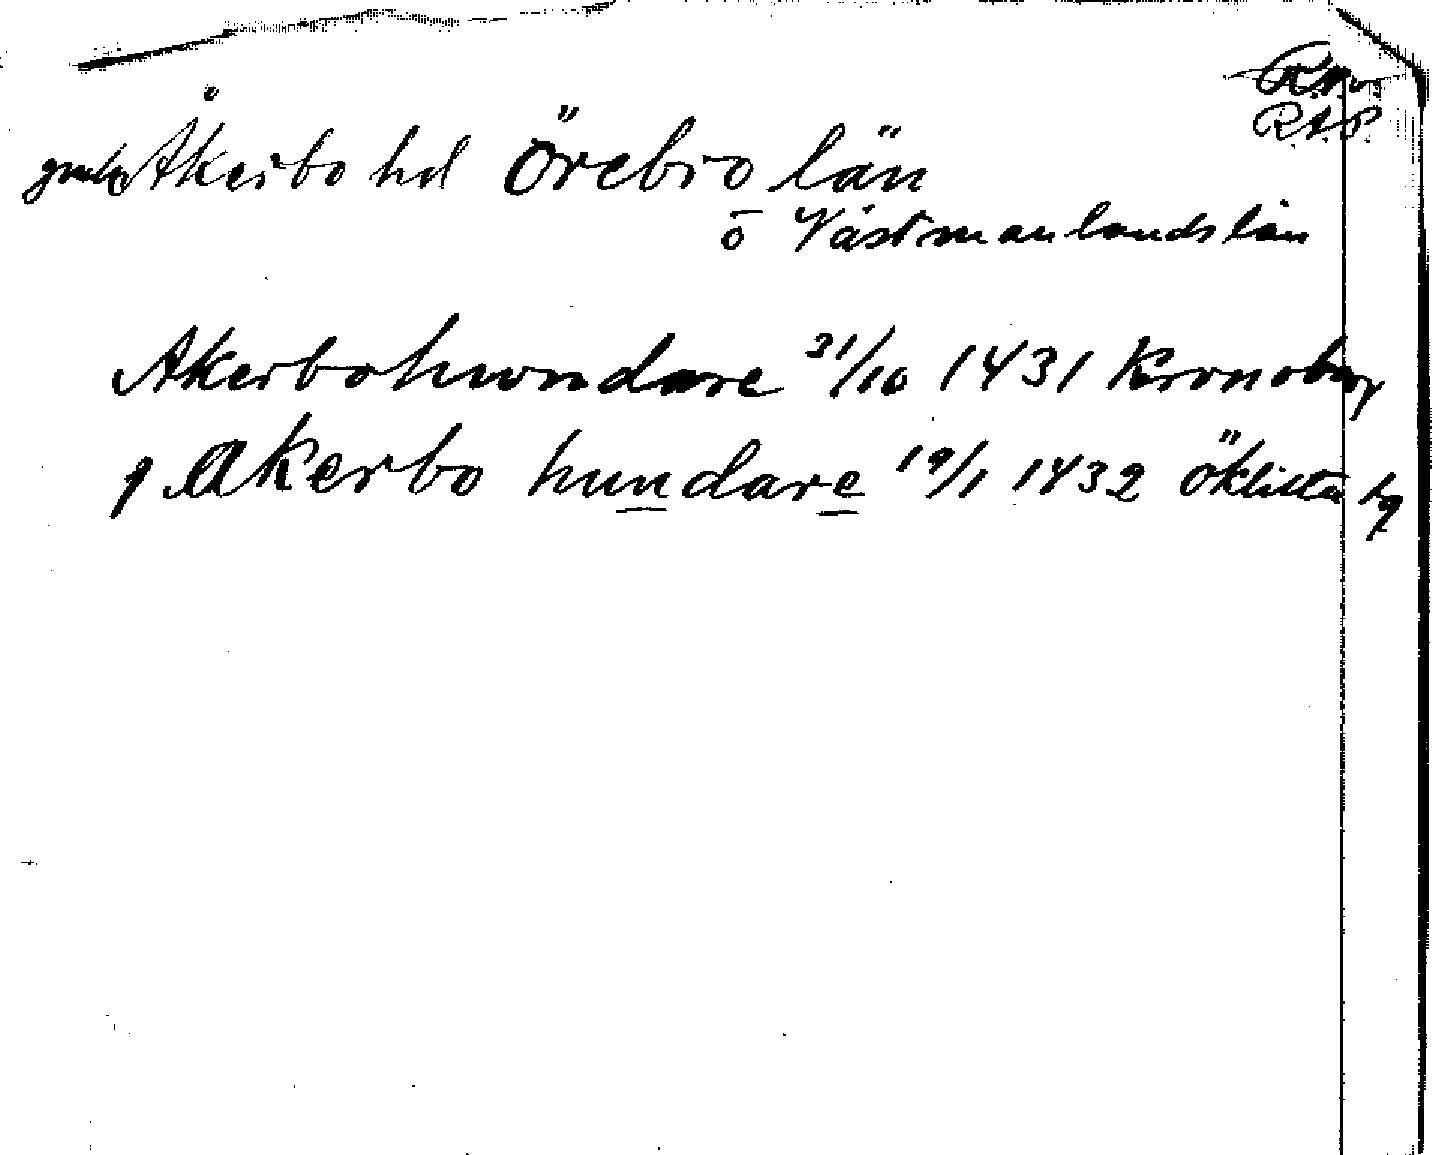 R.A.P.
Åkerbo hd Örebro län
o Västmanlands län
Akerbohwndare 31/10 1431 Kronoberg
j Akerbo hundare 19/1 1432 Öklista hg